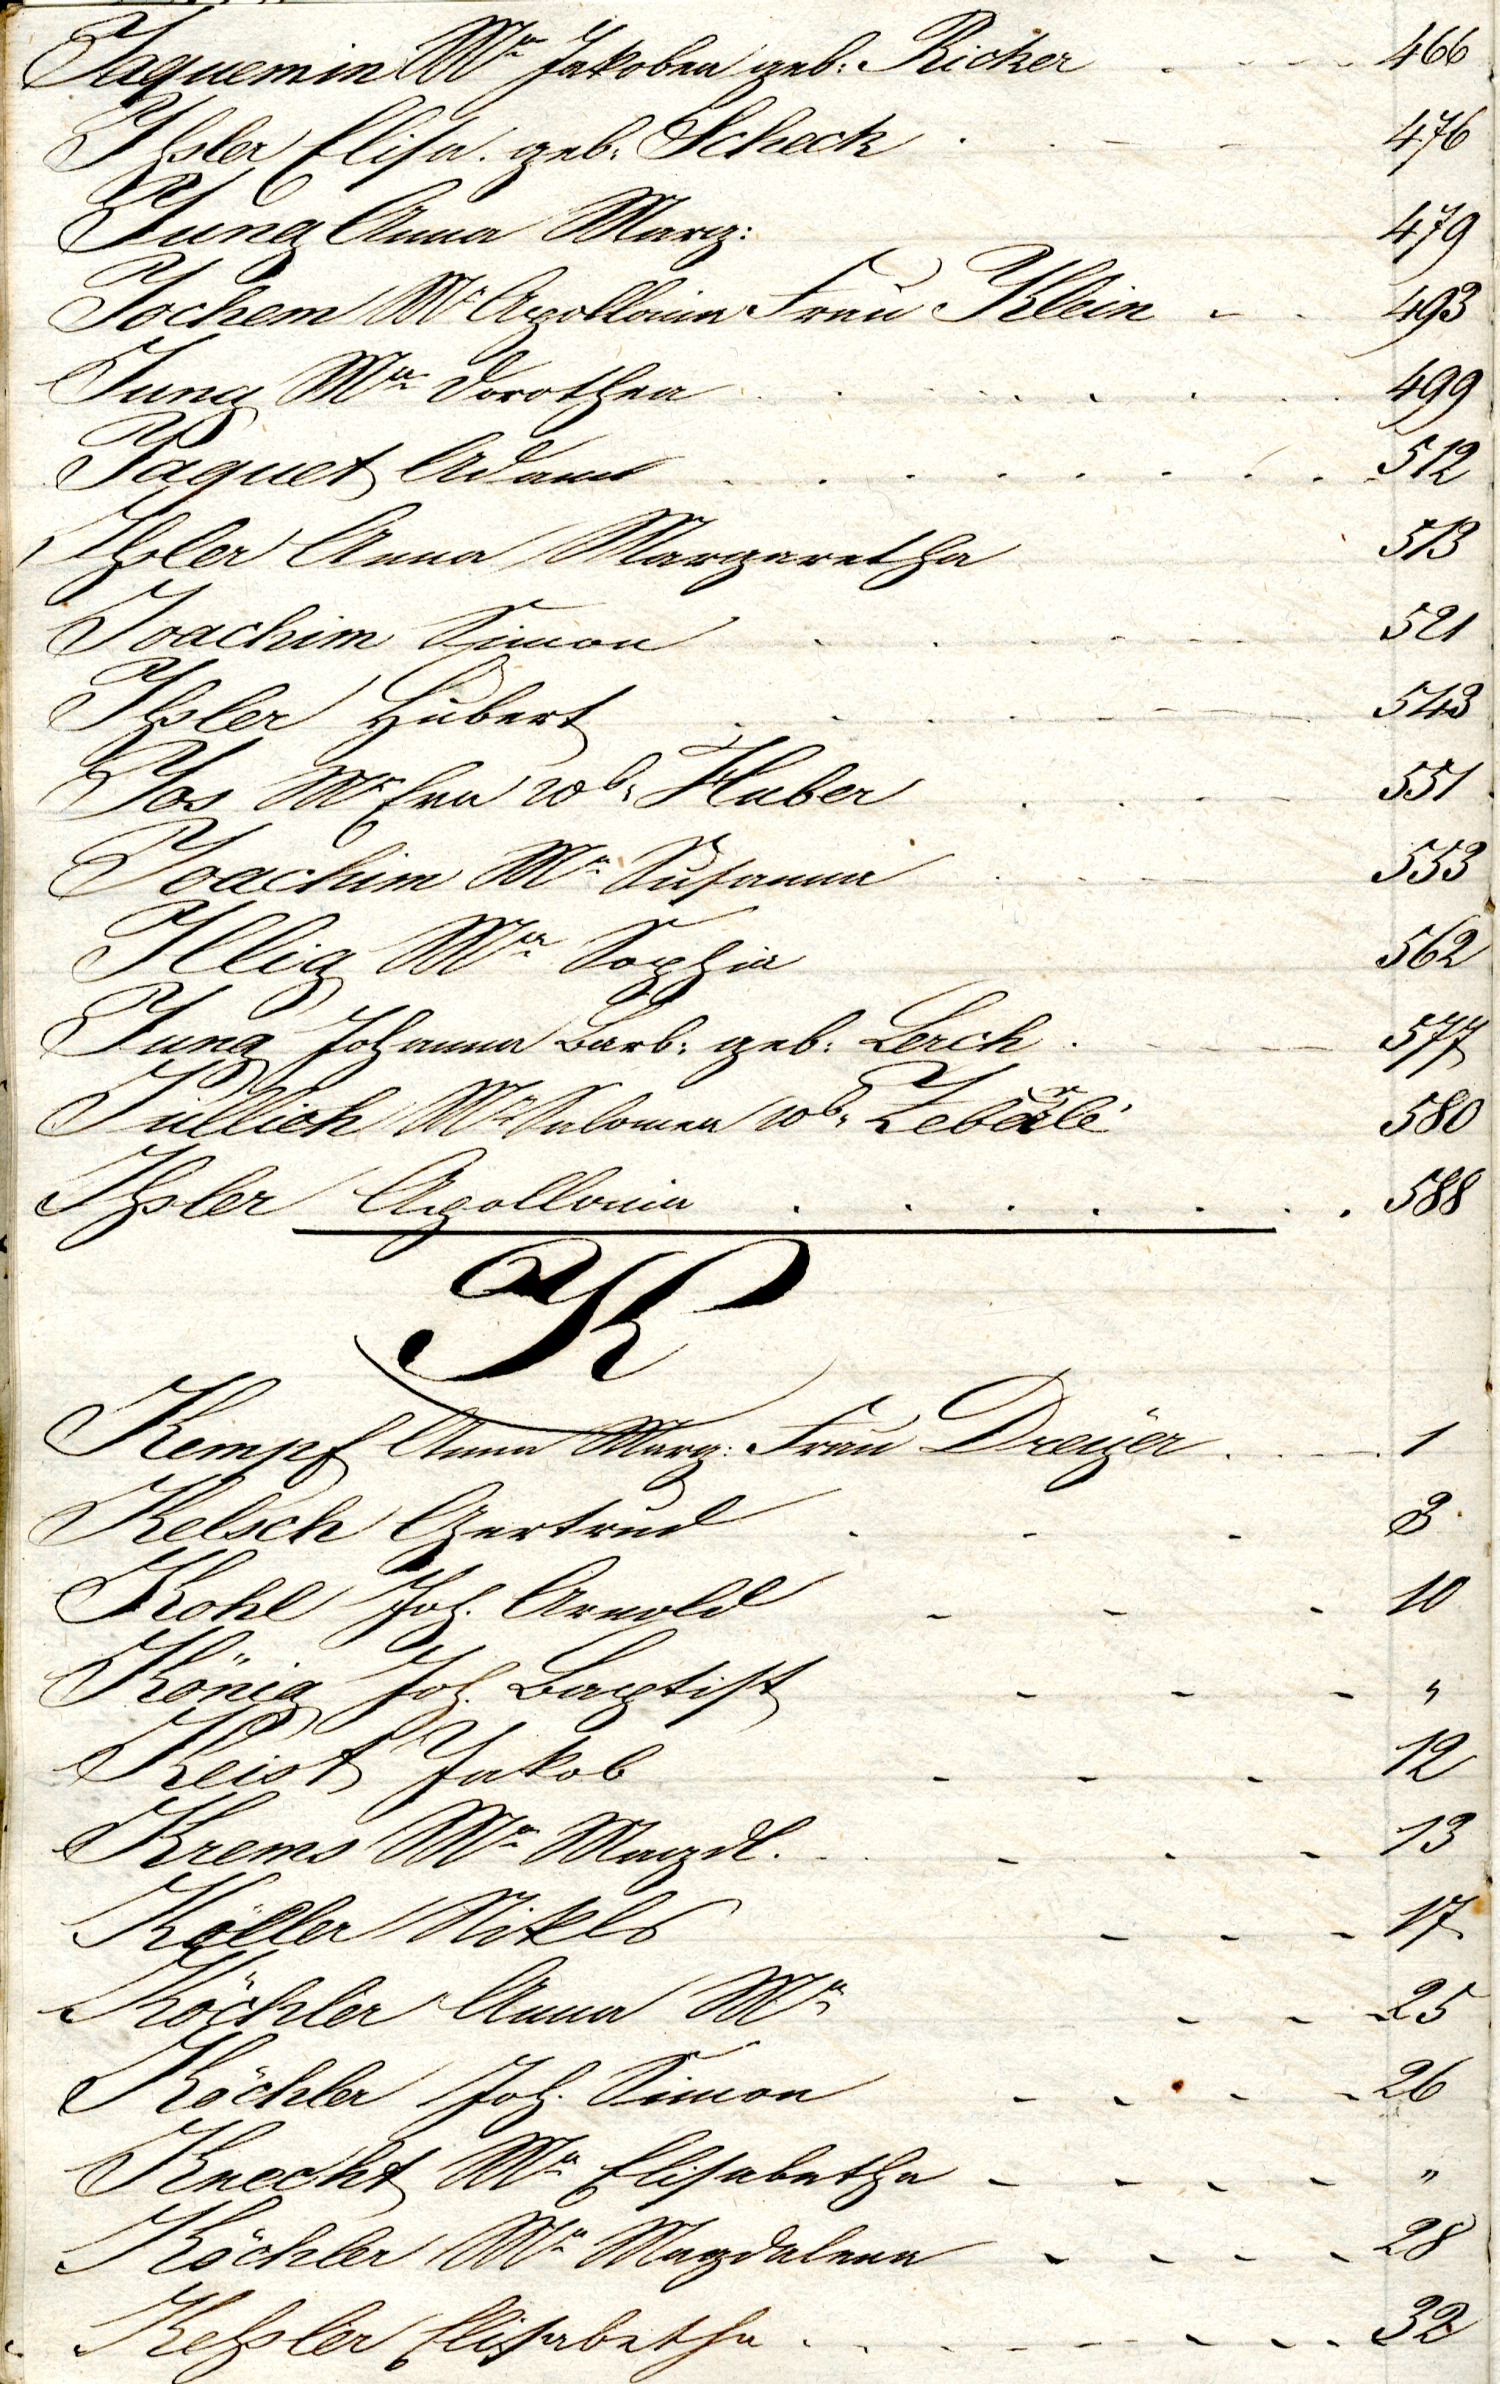 Jaquemin Mr. Jakobea geb: Ricker 466
Ißler Elisa. geb: Scheck 476
Jung Anna Marg: 479
Jochem Mr Apollonia Frau Klein 493
Jung Mra Dorothea 499
Jaquet Adam 512
Ißler Anna Margaretha 513
Joachim Simon 521
Ißler Hubert 543
Jos Mr Eva wb. Huber 551
Joachim Mr Susanna 553
Illig Mra Sophia 562
Jung Johanna Barb: geb: Lerch 577
Jüllich Mr Salomea wb. 580
Ißler Apollonia 588
K
Kempf Anna Marg: Frau Dreÿer 1
Kelsch Gertrud 3
Kohl Joh. Arnold 10
König Joh. Baptist "
Keist Jakob 12
Krems Mr Magdl. 13
Köller Nikls 17
Köchler Anna Mr 25
Köchler Joh. Simon 26
Knecht Mr Elisabetha "
Köchler Mr Magdalena 28
Keßler Elisabetha 32